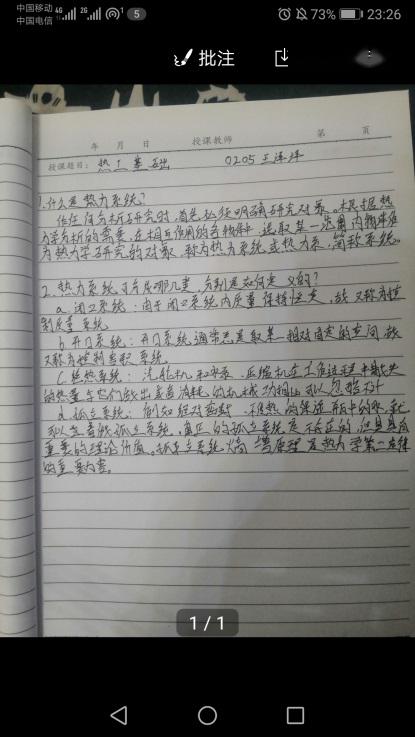 中国移动 4G 2G 1 5 73% 23:26
中国电信
批注
年 月 日 授课教师 第 页
授课题目: 热工基础 0205 王洋洋
1.什么是热力系统?
作任何分析研究时,首先必须明确研究对象。根据热
力学分析的需要,在相互作用的各物体中,选取某一范围内物体作
为热力学研究的对象,称为热力系统或热力系,简称系统。
2.热力系统可分成哪几类,分别是如何定义的?
a 闭口系统:由于闭口系统内质量保持恒定,故又称为控
制质量系统
b 开口系统:开口系统通常总是取某一相对固定的空间,故
又称为控制容积系统。
c 绝热系统:汽轮机和水泵、压缩机在工作过程中散失
的热量与它们做出或者消耗的机械功相比可以忽略不计
d 孤立系统:例如绝对密封、绝热的保温瓶中的水,就
可以当着做孤立系统,真正的孤立系统是不存在的,但具有
重要的理论价值。孤立系统熵增原理是热力学第二定律
的重要内容。
1 / 1